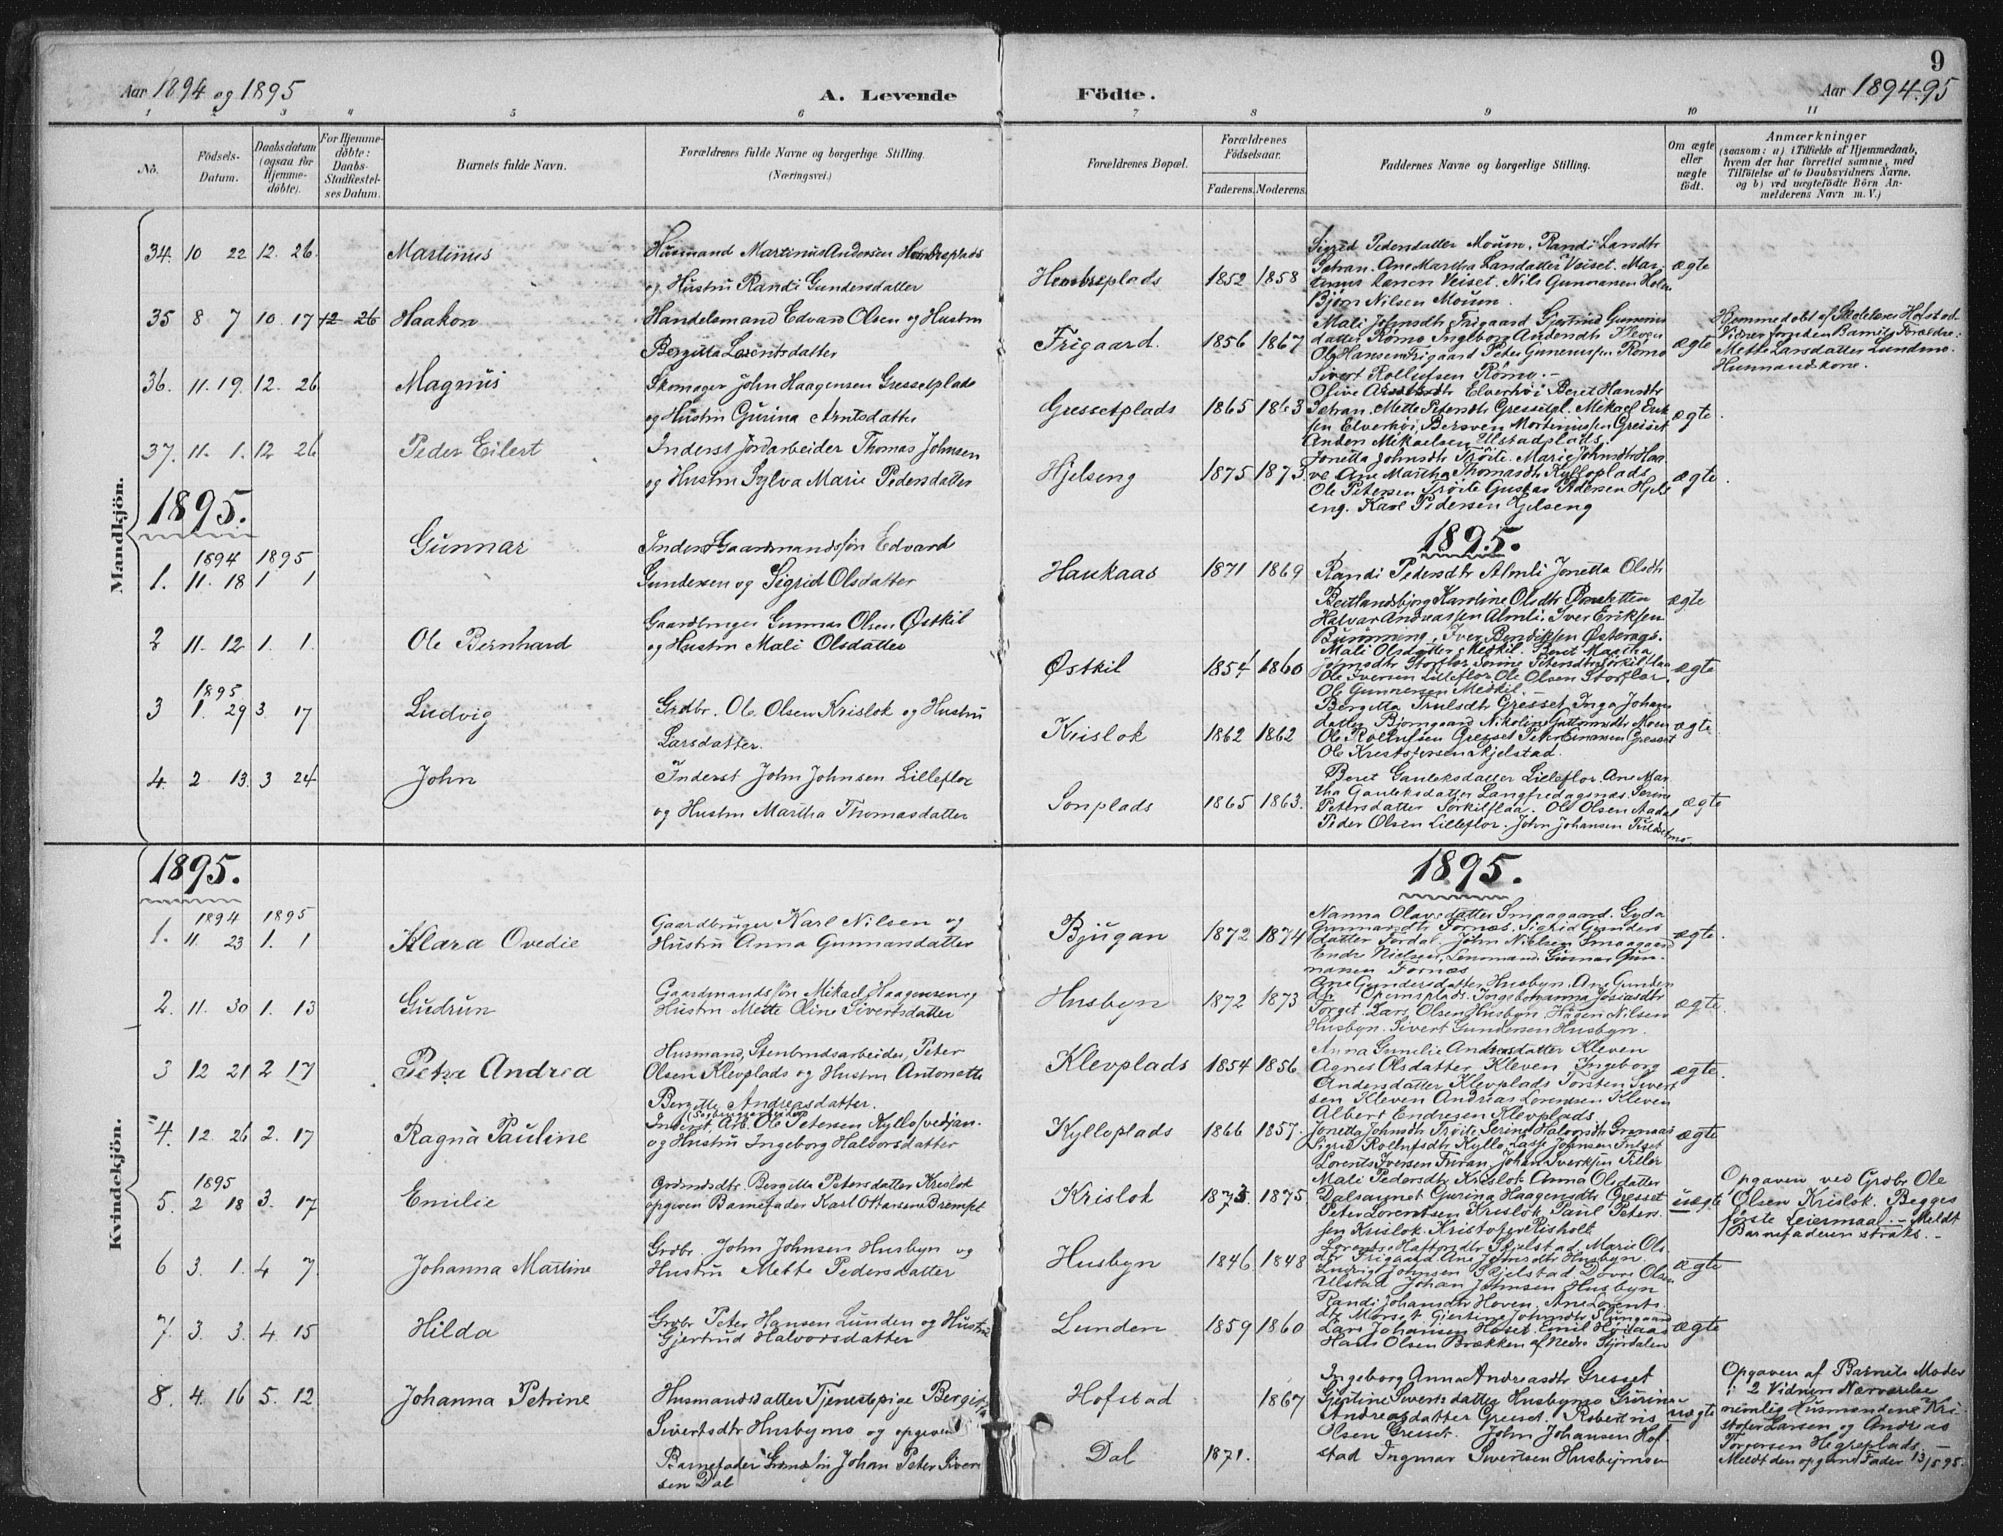 9
Aar 1894 og 1895
A. Levende Födte.
Aar 1894-95
1 2 3 4 5 6 7 8 9 10 11
No.
Födsels-Datum.
Daabsdatum (ogsaa for Hjemme-döbte).
For Hjemme-döbte: Daabs-Stadfæstel-ses Datum.
Barnets fulde Navn.
Forældrenes fulde Navne og borgerlige Stilling. (Næringsvei.)
Forældrenes Bopæl.
Forældrenes Födselsaar.
Faderens. Moderens.
Faddernes Navne og borgerlige Stilling.
Om ægte eller uægte födt.
Anmærkninger
(saasom: a) i Tilfælde af Hjemmedaab,
hvem der har forrettet samme, med
Tilföielse af to Daabsvidners Navne,
og b) ved uægtefödte Börn An-
melderens Navn m. V.)
Mandkjön.
34. 10 22 12. 26. Martinus
Husmand Martinus Andersen Hembreplads
og Hustru Randi Gundersdatter
Hembreplads 1852 1858
Sigrid Pedersdatter Moum. Randi Larsdtr
Björn Nilsen Moum.
ægte
35 8 7 10. 17 12 26 Haakon
Handelsmand Edvard Olsen og Hustru
Bergitta Lorentsdatter
Frigaard. 1856 1867
Mali Johnsdtr Frigaard Gjertrud Gunnerus
datter Römo Ingeborg Andersdtr
Ole Hansen Frigaard Peter Gunnerussen Römo
Sivert Rollufsen Römo. -
ægte
Hjemmedöbt af Hofstad
Vidner foruden Barnets Forældre:
Mette Larsdatter Lundmo.
Husmandskone.
36. 11. 19. 12. 26 Magnus
Skomager John Haagensen Gressetplads
og Hustru Gurina Arntsdatter
Gressetplads 1865 1863
Elverhöi Beret Hansdtr
Mette Petersdtr Gressetpl. Mikael Erik
sen Elverhöi, Bersven Mortenussen Gresset
Anders Mikaelsen Ulstadplads.
ægte.
37. 11. 1. 12 26 Peder Eilert
Inderst Jordarbeider Thomas Johnsen
og Hustru Sylva Marie Pedersdatter
Hjelseng 1875 1873.
Jonetta Johnsdtr Tröite. Marie Johnsdtr Haa
ve Ane Martha Thomasdtr Kylloplads
Ole Petersen Tröite Gustav Pedersen Hjels
eng. Karl Pedersen Hjelseng
ægte.
1895.
1895.
1894 1895
1. 11. 18 1 1 Gunnar
Inderst Gaardmandssön Edvard
Gundersen og Sigrid Olsdatter
Haukaas 1871 1869
Randi Pedersdtr Almli Jonetta Olsdtr
Karoline Olsdtr
Halvar Andreassen Almli. Iver Eriksen
ægte
2 11. 12 1. 1. Ole Bernhard
Gaardbruger Gunnar Olsen Østkil
og Hustru Mali Olsdatter
Østkil 1854 1860
Mali Olsdatter Medkil. Beret Martha
Ole Iversen Lilleflor Ole Olsen Storflor
Ole Gunnersen Medkil. -
ægte
1895
3 1. 29 3 17 Ludvig
Grdbr. Ole Olsen Krislok og Hustru
Larsdatter.
Krislok 1862 1862
Bergitta Trulsdtr Gresset Inga Johans
datter Bjorngaard Nikoline
Ole Rollufsen Gresset Peter Einarsen Gresset
Ole Kristofersen Skjelstad.
ægte
4. 2 13. 3 24 John
Inderst John Johnsen Lilleflor
og Hustru Martha Thomasdatter
Sonplads 1865 1863.
Beret Gauteksdatter Lilleflor. Ane Mar
tha Gauteksdatter Langfredagsnæs. Serine
Petersdatter Sörkilflaa. Ole Olsen Aadal
Peder Olsen Lilleflor. John Johansen
ægte
Kvindekjön.
1895.
1895.
1894 1895
1. 11. 23 1. 1 Klara Ovedie
Gaardbruger Karl Nilsen og
Hustru Anna Gunnarsdatter
Bjugan 1872 1874
Nanna Olavsdatter Smaagaard. Gyda
Gunnarsdtr Fornæs. Sigrid Gunders
datter Fordal. John Nielsen Smaagaard
Endre Nielsen, Lensmand. Gunnar Gun-
narsen Fornæs
ægte.
2. 11. 30 1. 13 Gudrun
Gaardmandssön Mikael Haagensen og
Hustru Mette Oline Sivertsdatter
Husbyn 1872 1873
Ane Gundersdatter Husbyn. Ane Gunders
dtr Josiasdtr
Torget. Lars Olsen Husbyn. Haagen Nilsen
Husbyn. Sivert Gundersen Husbyn.
ægte.
3 12 21 2 17 Petra Andrea
Husmand, Stenbrudsarbeider, Peter
Olsen Klevplads og Hustru Antonette
Bergitte Andreasdatter.
Klevplads 1854 1856
Anna Gunelie Andersdatter Kleven
Agnes Olsdatter Kleven Ingeborg
Andersdatter Klevplads Torsten Sivert
sen Kleven Andreas Lorentsen Kleven
Albert Endresen Klevplads
ægte.
4. 12. 26 2. 17 Ragna Pauline
Inderst, Arb. Ole Petersen Kyllosvedjan
og Hustru Ingeborg Halvorsdatter
Kylloplads 1866 1857.
Jonetta Johnsdtr Tröite Serine Halvorsdtr
Sigrid Rollufsdtr Kyllo. Lasse Johnsen
Lorents Iversen Johan Tiller
ægte
1895
5. 2 18 3. 17 Emilie
Grdmdsdtr. Bergitta Petersdatter Krislok
opgiven Barnefader Karl Ottersen Brempt
Krislok 1873. 1875
Mali Pedersdtr Krislok Anna Olsdatter
Dalsaunet Gurina Haagensdtr Gresset
Peter Lorentsen Krislok Paul Peters
sen Krislok. Kristofer Risholt
uægte
Opgaven ved Grdbr Ole
Olsen Krislok. Begges
förste Leiermaal. - Meldt
Barnefaderen straks. -
6 3. 1. 4 7. Johanna Martine
Grdbr. John Johnsen Husbyn og
Hustru Mette Pedersdatter
Husbyn 1846 1848
Skjelstad. Marie Ols
dtr Frigaard Ane Johnsdtr Husbyn
Ludvig Johnsen Skjelstad Olsen
Ulstad Johan Johnsen Husbyn
ægte
7. 3. 3. 4. 15 Hilda
Grdbr Peter Hansen Lunden og Hustru
Gjertrud Halvorsdatter
Lunden 1859 1860
Randi Johansdtr Hoven. Ane Lorents
dtr Morset Gjertine Johnsdtr
Lars Johansen Höset Emil
Hans Olsen Brækken af Nedre Stjördalen
ægte
8. 4. 16 5. 12 Johanna Petrine
Husmandsdatter Tjenestepige Bergitta
Sivertsdtr Husbymo og opgiven
Barnefader Johan Peter Sivert
sen Dal
Hofstad 1867
Dal 1871.
Ingeborg Anna Andreasdtr Gresset
Gjertine Sivertsdatter Husbymo Gurine
Andreasdatter Gresset. Robertus
Olsen Gresset. John Johansen Hof
stad Ingmar Sivertsen Husbymoen
uægte
Opgaven af Barnets Moder
i 2 Vidners Nærværelse
nemlig Husmændene Kri
stofer Larsen og Andreas
Torgersen Hegreplads. -
Meldt den opgivne Fader 13/5 95.